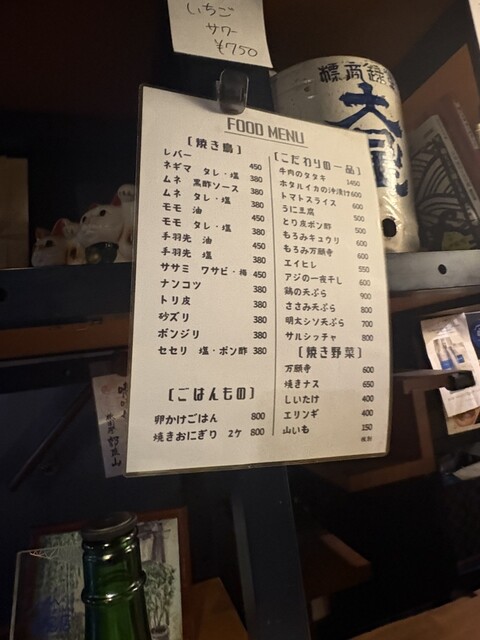 いちご
サワー
¥750
標商録
大
FOOD MENU
【焼き鳥】
レバー 450
ネギマ タレ・塩 380
ムネ 黒酢ソース 380
ムネ タレ・塩 380
モモ 油 450
モモ タレ・塩 380
手羽先 油 450
手羽先 塩 380
ササミ ワサビ・梅 450
ナンコツ 380
トリ皮 380
砂ズリ 380
ボンジリ 380
セセリ 塩・ポン酢 380
【ごはんもの】
卵かけごはん 800
焼きおにぎり 2ケ 800
【こだわりの一品】
牛肉のタタキ 1450
ホタルイカの沖漬け600
トマトスライス 600
うに豆腐 500
とり皮ポン酢 500
もろみキュウリ 600
もろみ万願寺 600
エイヒレ 550
アジの一夜干し 600
鶏の天ぷら 900
ささみ天ぷら 800
明太シソ天ぷら 700
サルシッチャ 800
【焼き野菜】
万願寺 600
焼きナス 650
しいたけ 400
エリンギ 400
山いも 150
税別